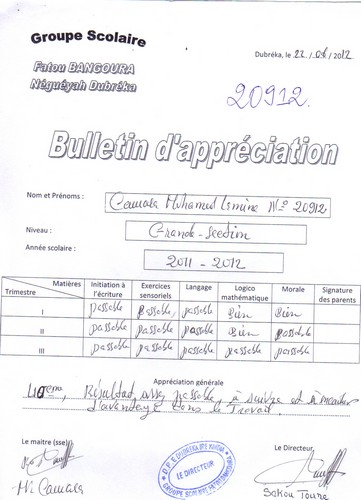 Groupe Scolaire
Fatou BANGOURA
Néguéyah Dubréka
Dubréka, le 22/08/2012
20912.
Bulletin d'appréciation
Nom et Prénoms : Camara Mohamed Lamine N° 20912
Niveau : Grande-section
Année scolaire : 2011 - 2012
Matières Trimestre Initiation à l'écriture Exercices sensoriels Langage Logico mathématique Morale Signature des parents
I passable passable passable Bien Bien
II passable passable passable Bien passable
III passable passable passable passable passable
Appréciation générale
Résultat assez passable, à suivre et à
d'avantage dans le travail.
Le maitre (sse)
Le Directeur,
LE DIRECTEUR
Mr Camara
Sakou Touré